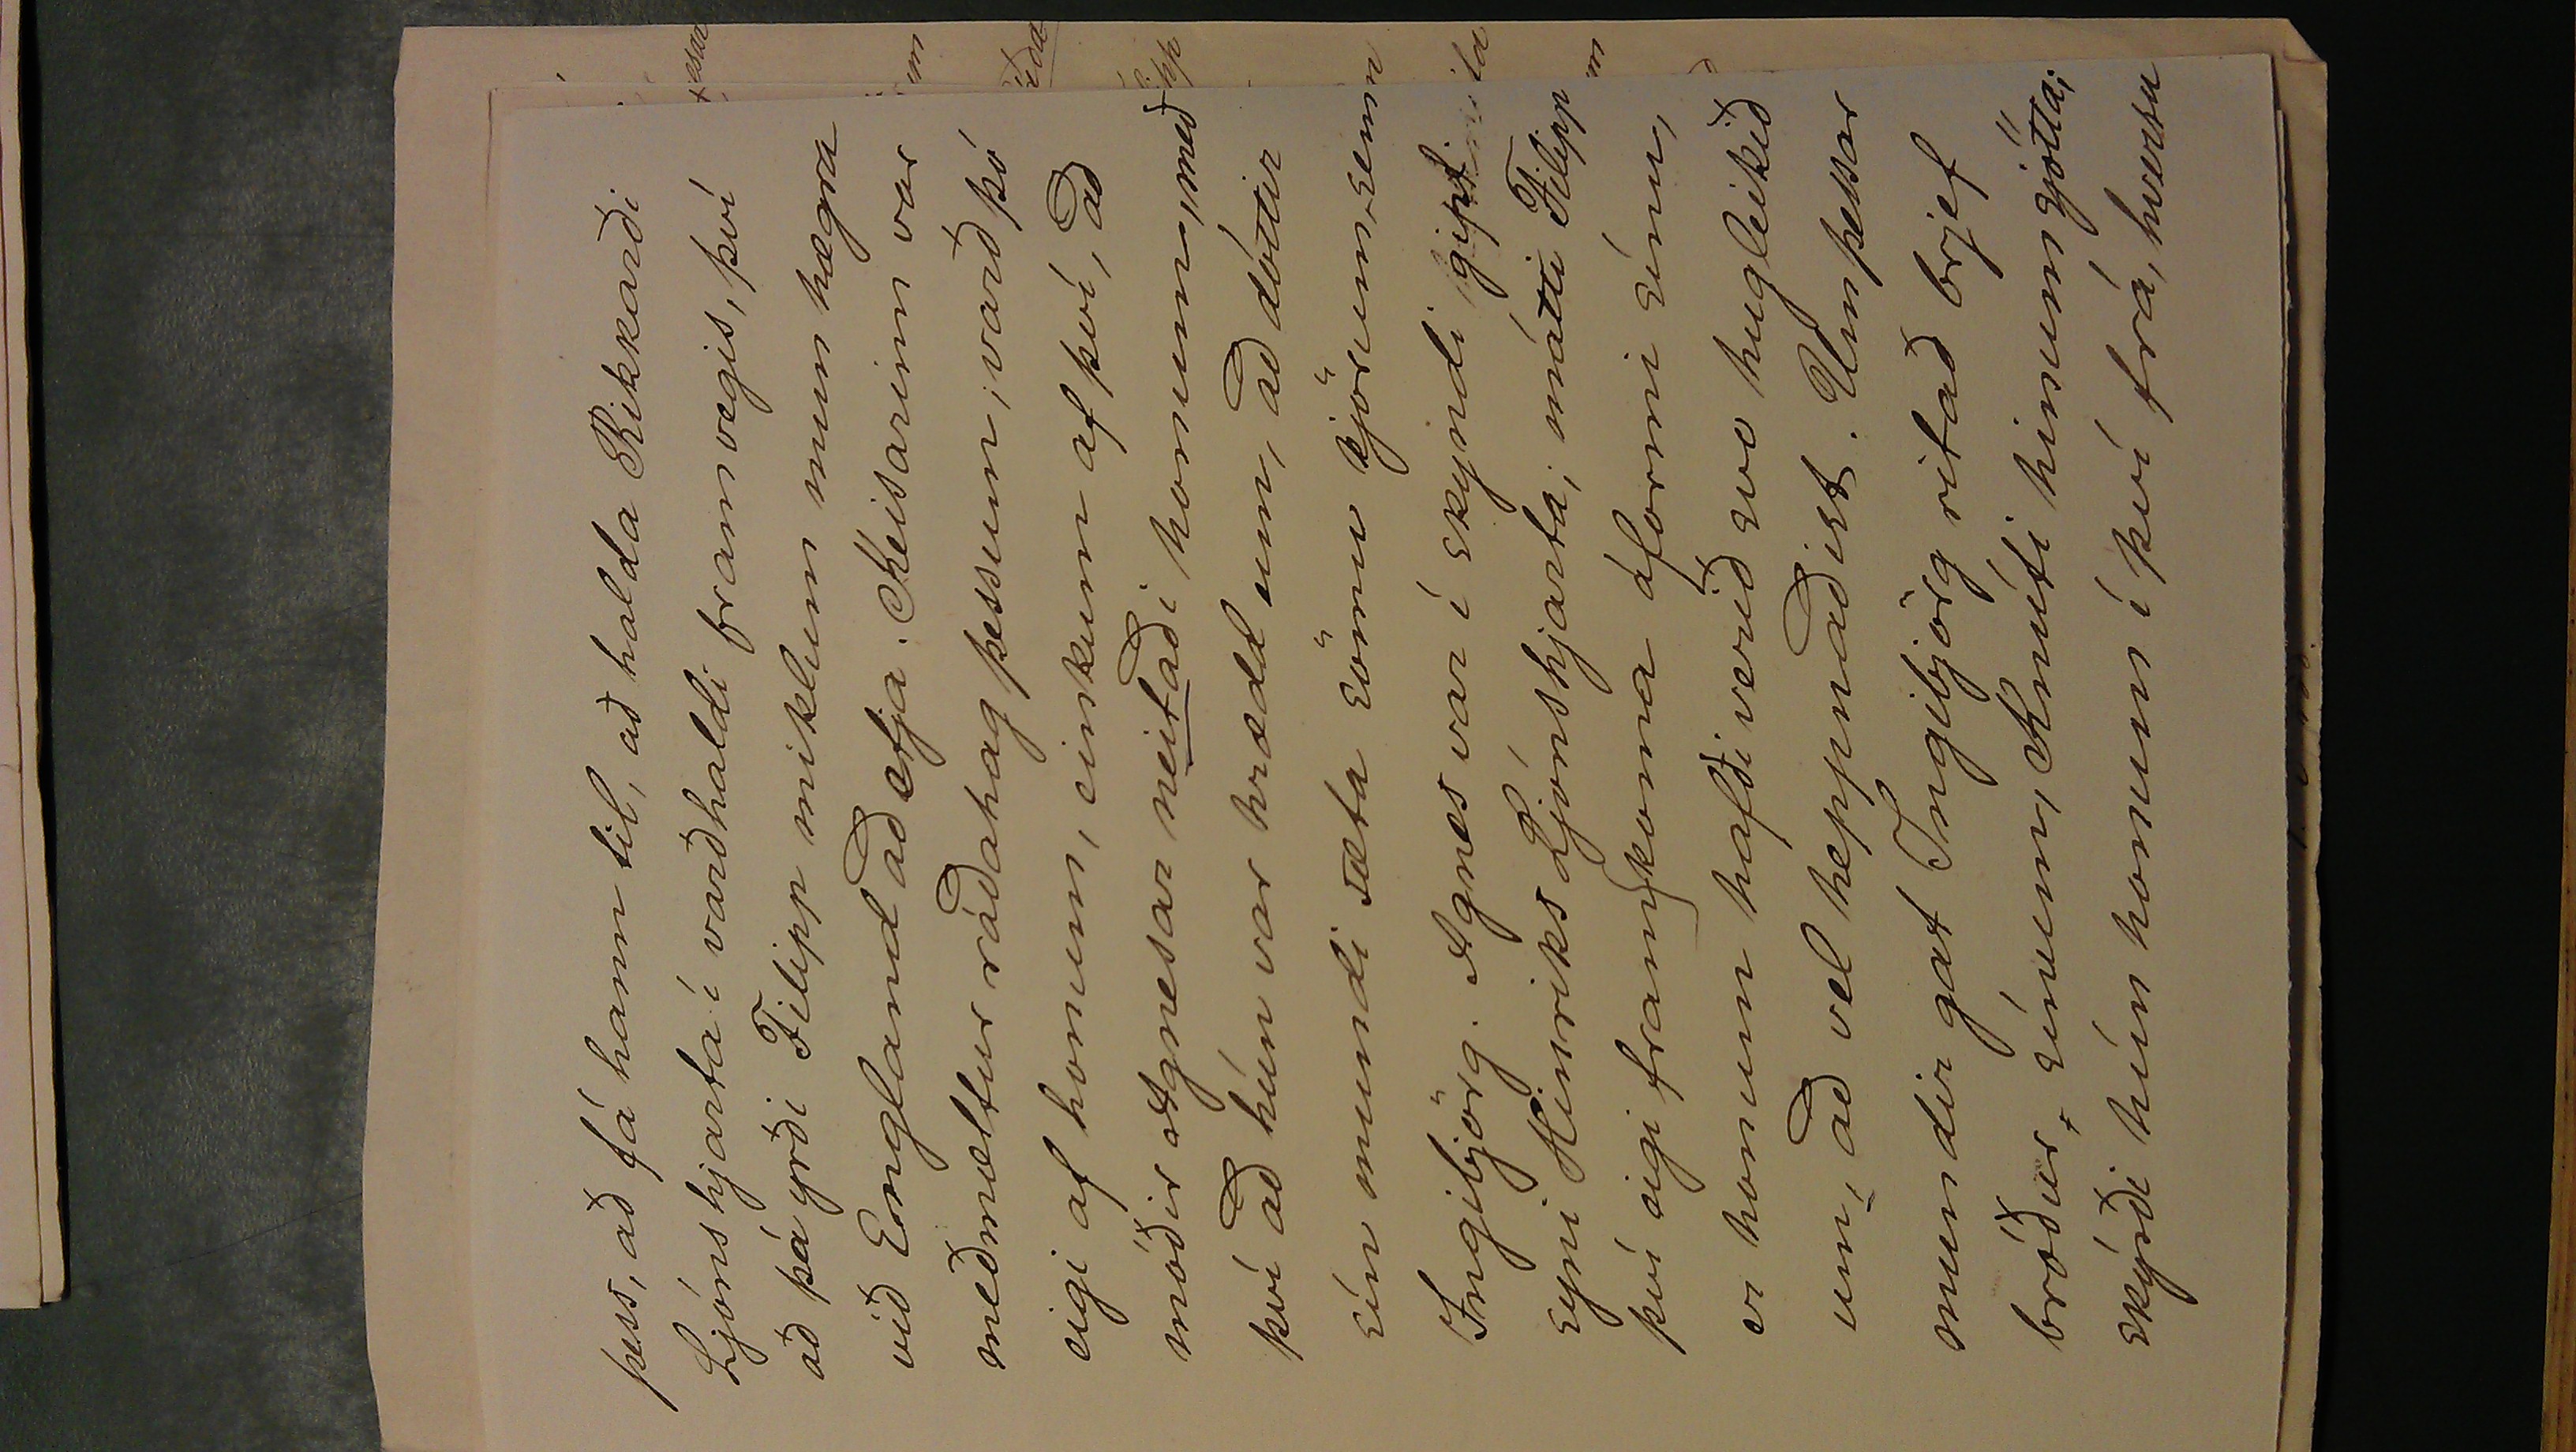 þess, að fá hann til, að halda Rikkarði
Ljónshjarta í varðhaldi framvegis, því
að þá yrði Filipp miklum mun hægra
við England að etja. Keisarinn var
meðmæltur ráðahag þessum; varð þó
eigi af honum, einkum af því, að
móðir Agnesar neitaði honum, með
því að hún var hrædd um, að dóttir
sín mundi sæta sömu kjörum, sem
Ingibjörg. Agnes var í skyndi gipt
syni Hinriks Ljónshjarta; mátti Filipp
því eigi fram koma áformi sínu,
er honum hafði verið svo hugleikið
um, að vel heppnaðist. Um þessar
mundir gat Ingibjörg ritað brjef
bróður sínum, Knúti hinum sjötta;
skýrði hún honum í því frá, hversu